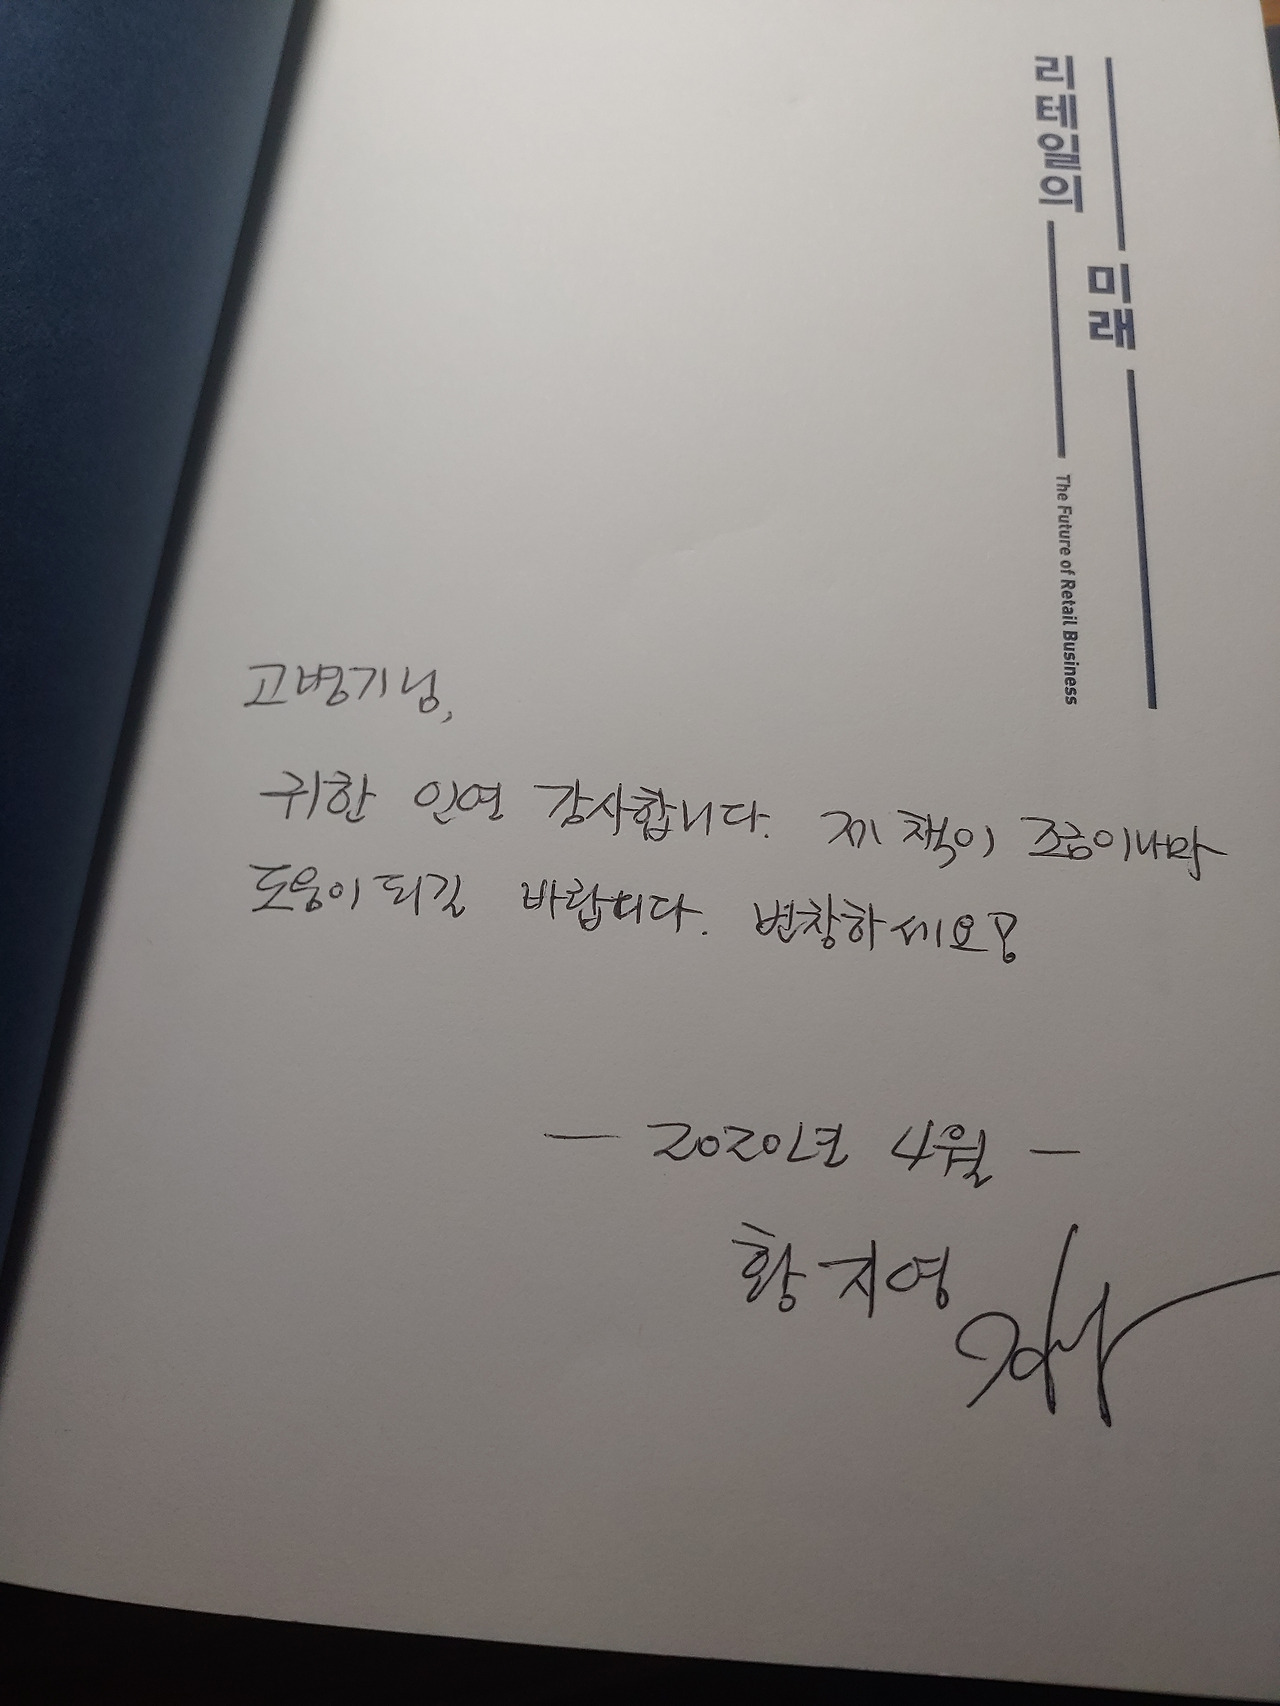 리테일의
미래
The Future of Retail Business
고병기님,
귀한 인연 감사합니다. 제 책이 조금이나마
도움이 되길 바랍니다. 번창하세요!
— 2020년 4월 —
황지영